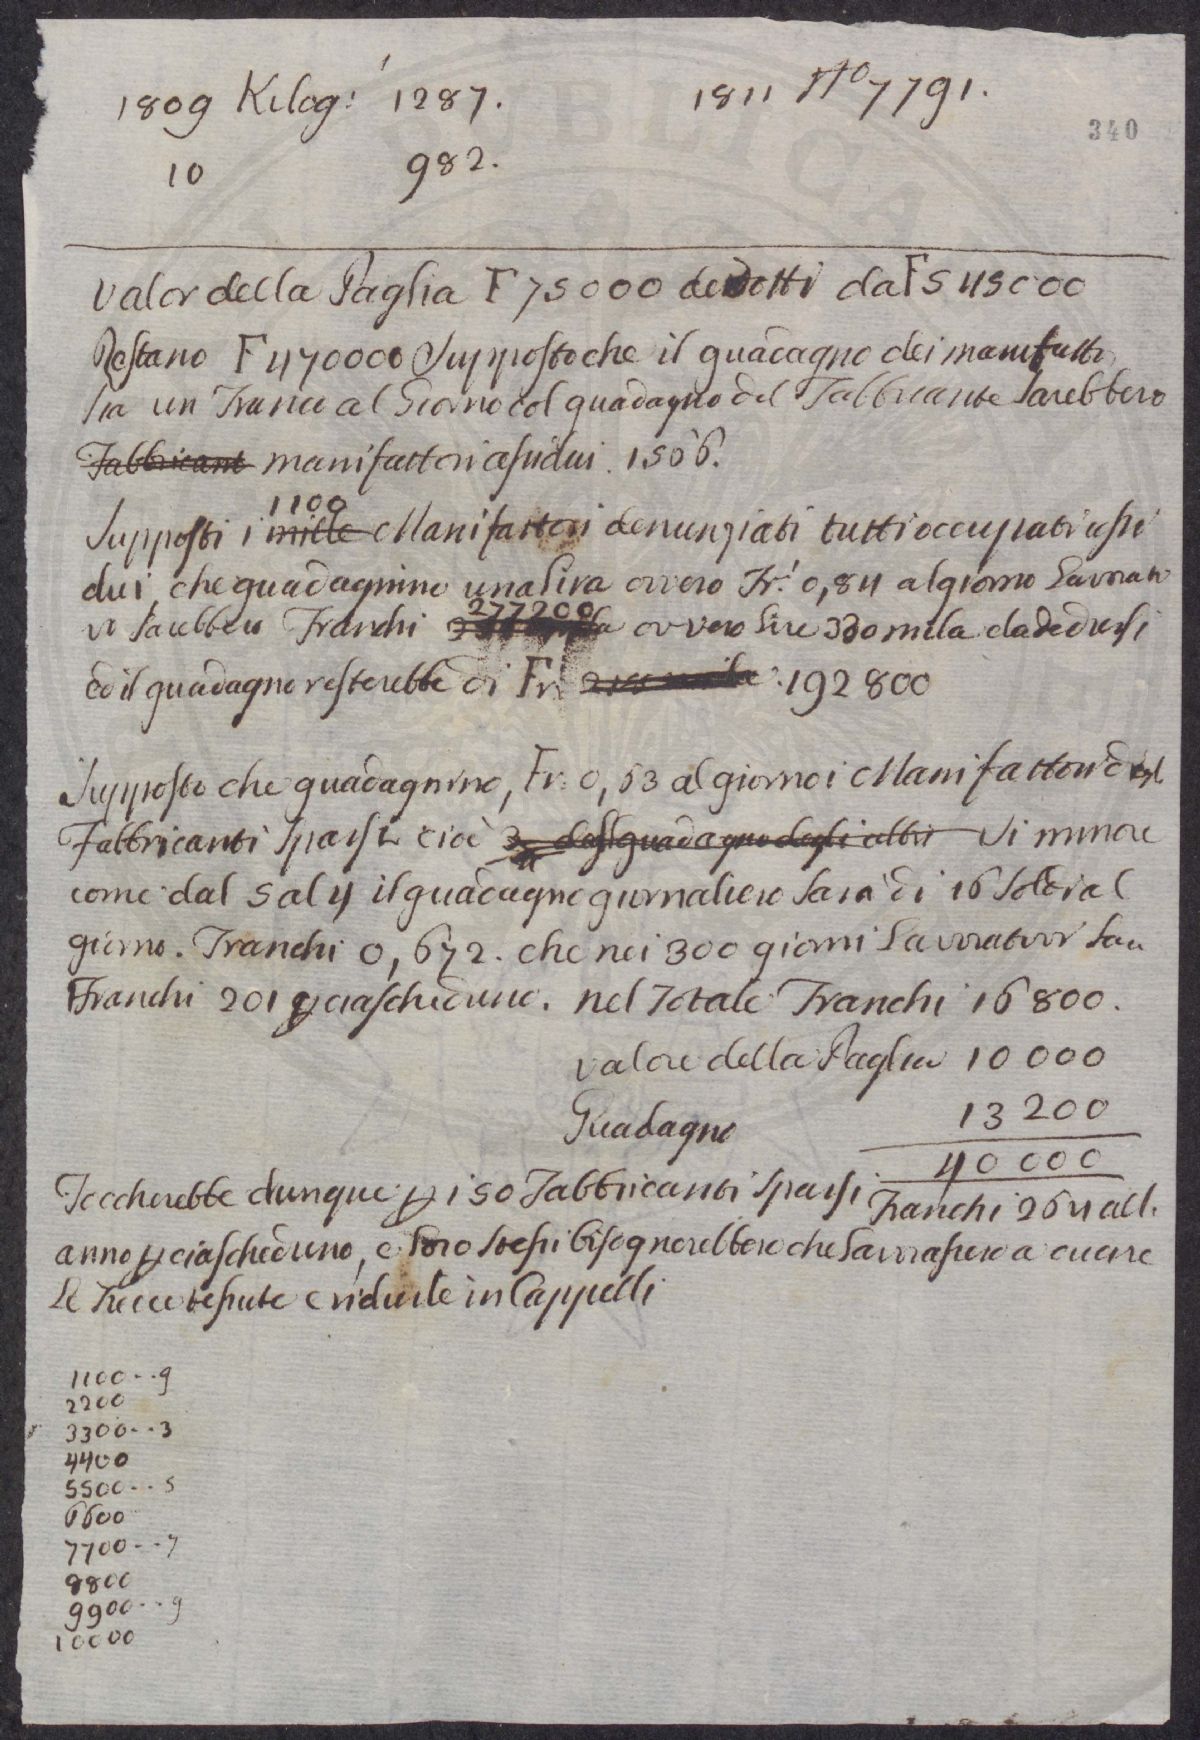 1809 Kilog: 1287. 1811 No 7791.
340
10 982.
Valor della Paglia F 75000 dedotti da F 545000
Restano F 470000 Supposto che il guadagno dei manifatto
sia un Franco al Giorno col guadagno del Fabbricante Sarebbero
Fabbricant manifattori assidui. 1506.
1100
Supposti i mille Manifattori denunziati tutti occupati assi
dui, che guadagnino una Lira ovvero Fr. 0,84 al giorno Lavorati
277200
vi Sarebbero Franchi ovvero Lire 330 mila da dedursi
ed il guadagno resterebbe di Fr. 192800
Supposto che guadagnino, Fr. 0,63 al giorno i Manifattori degl
Fabbricanti Sparsi cioè del guadagno degli altri vi minore
come dal 5 al 4 il guadagno giornaliero Sarà di 16 Soldi al
giorno. Franchi 0,672. che nei 300 giorni Lavorativi San
Franchi 201 p ciascheduno. nel Totale Franchi 16800.
valore della Paglia 10000
Guadagno 13200
40000
Toccherebbe dunque p i 50 Fabbricanti Sparsi Franchi 264 all
anno p ciascheduno, e loro stessi bisognerebbero che Lavorassero a cucire
le Trecce tessute e ridurle in Cappelli
1100 - - 9
2200
3300 - - 3
4400
5500 - - 5
6600
7700 - - 7
8800
9900 - - 9
10000